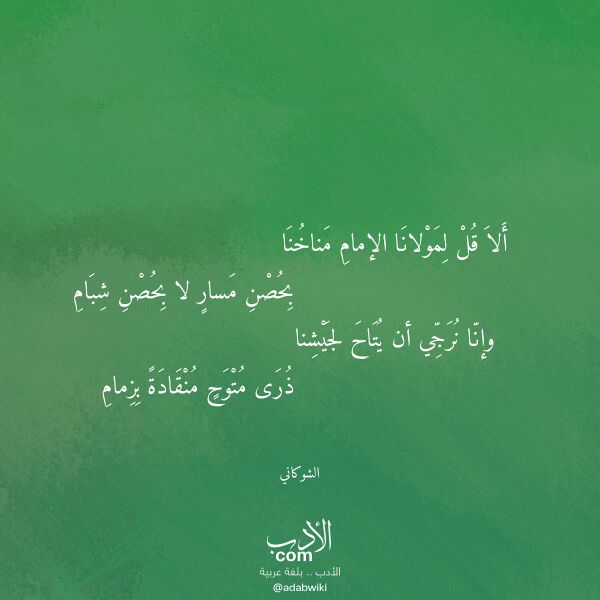 أَلاَ قُلْ لِمَوْلانَا الإمامِ مَناخُنَا
بِحُصْنِ مَسارٍ لا بِحُصْنِ شِبَامِ
وإنّا نُرَجِّي أن يُتَاحَ لجَيْشِنا
ذُرَى مُتْوَحٍ مُنْقَادَةً بِزِمامِ
الشوكاني
الأدب
com
الأدب .. بلغة عربية
@adabwiki